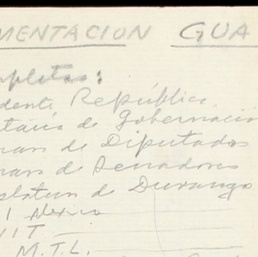 MENTACION GUA
mpletas:
dente República
etaría de Gobernació
maras de Diputados
maras de Senadores
slatura de Durango
l México
IT
M.T.L.